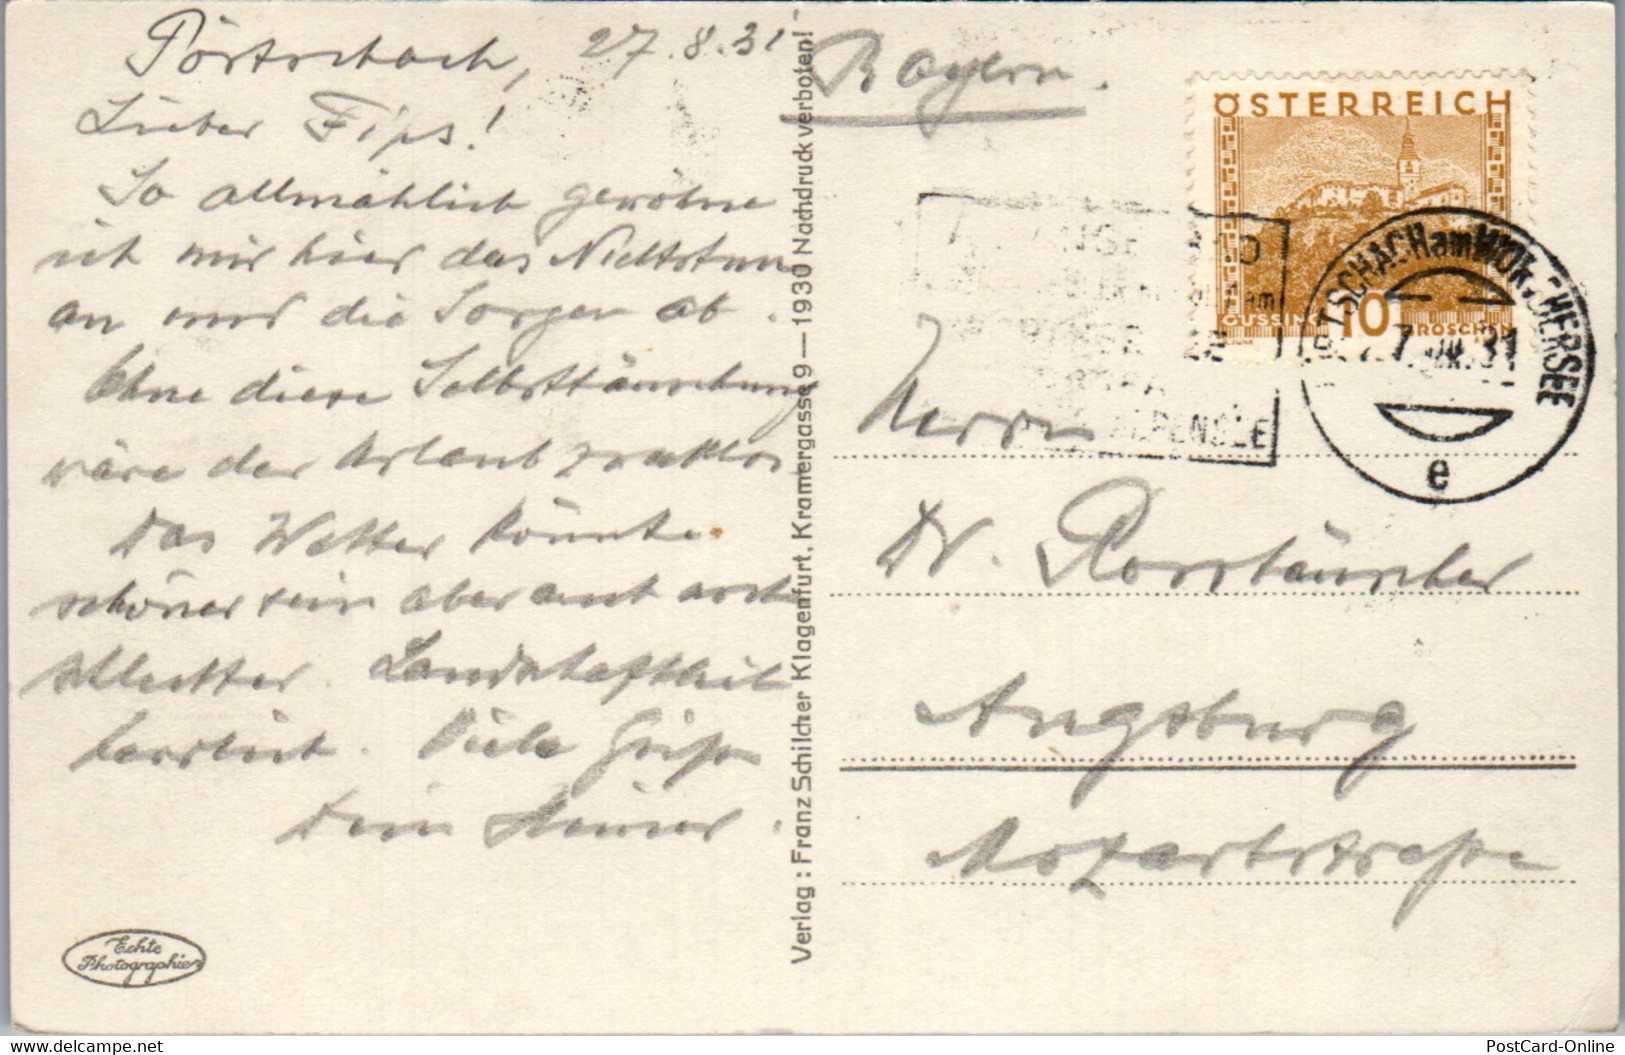 Pörtschach, 27.8.31
Lieber Fips!
So allmählich gewöhne
ich mir hier das Nichtstun
an und die Sorgen ab.
Ohne diese Selbsttäuschung
wäre der Urlaub zwecklos
Das Wetter könnte
schöner sein aber auch noch
schlechter. Landschaftlich
herrlich. Viele Grüße
Dein Heiner.
Echte
Photographie
Verlag: Franz Schilcher Klagenfurt, Kramergasse 9 — 1930 Nachdruck verboten!
Bayern.
ÖSTERREICH
GÜSSING 10 GROSCHEN
31
e
ALPENSEE
Herrn
Dr.
Augsburg
Mozartstraße
PostCard-Online
www.delcampe.net